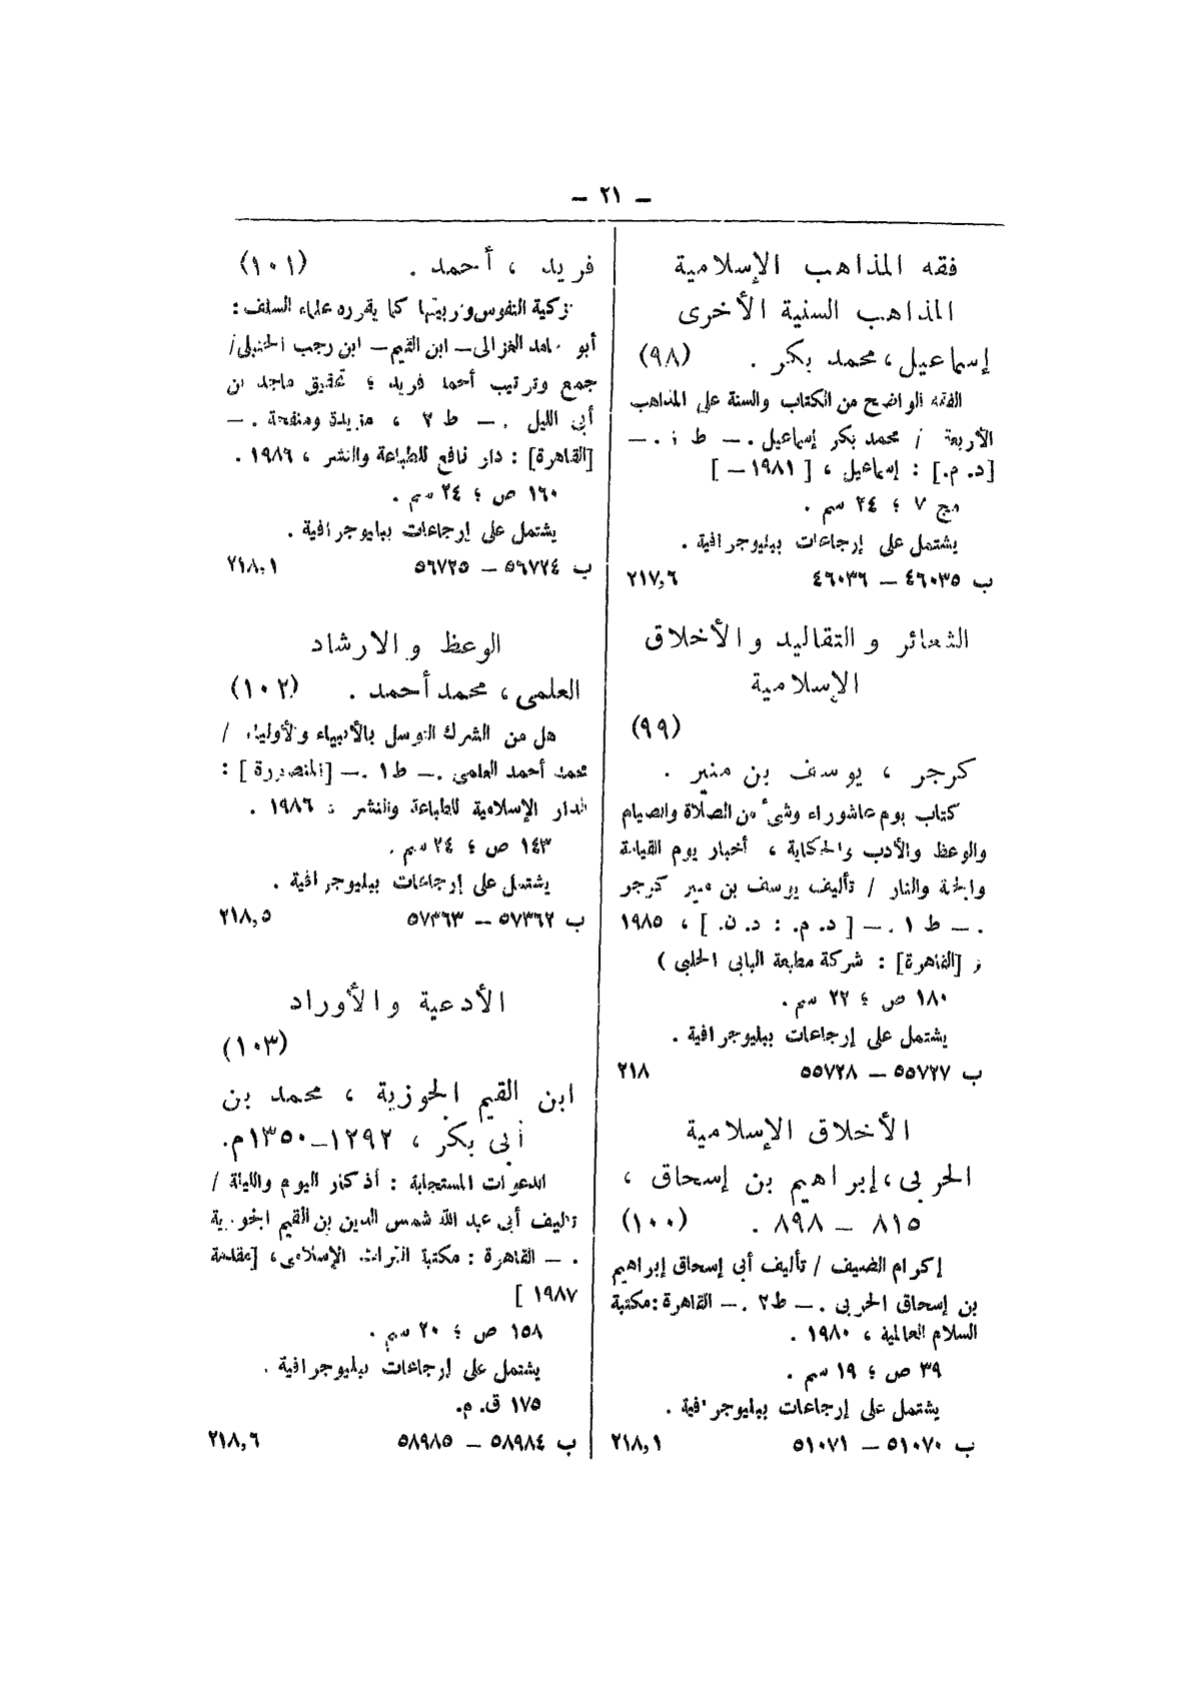 — ٢١ —
فقه المذاهب الإسلامية
المذاهب السنية الأخرى
إسماعيل ، محمد بكر . (٩٨)
الفقه الواضح من الكتاب والسنة على المذاهب
الأربعة / محمد بكر إسماعيل . — ط . —
[د. م.] : إسماعيل ، [ ١٩٨١ — ]
مج ٧ ؛ ٢٤ سم .
يشتمل على إرجاعات ببليوجرافية .
ب ٤٦٠٣٥ — ٤٦٠٣٦ ٢١٧,٦
الشعائر والتقاليد والأخلاق
الإسلامية
(٩٩)
كرجر ، يوسف بن منير .
كتاب يوم عاشوراء وشئ من الصلاة والصيام
والوعظ والأدب والحكاية ، أخبار يوم القيامة
والجنة والنار / تأليف يوسف بن منير كرجر
. — ط ١ . — [ د. م. : د. ن. ] ، ١٩٨٥
[القاهرة] : شركة مطبعة البابى الحلبى )
١٨٠ ص ؛ ٢٢ سم .
يشتمل على إرجاعات ببليوجرافية .
ب ٥٥٧٢٧ — ٥٥٧٢٨ ٢١٨
الأخلاق الإسلامية
الحربى ، إبراهيم بن إسحاق ،
٨١٥ — ٨٩٨ . (١٠٠)
إكرام الضيف / تأليف أبى إسحاق إبراهيم
بن إسحاق الحربى . — ط٢ . — القاهرة : مكتبة
السلام العالمية ، ١٩٨٠ .
٣٩ ص ؛ ١٩ سم .
يشتمل على إرجاعات ببليوجرافية .
ب ٥١٠٧٠ — ٥١٠٧١ ٢١٨,١
فريد ، أحمد . (١٠١)
تزكية النفوس وتربيتها كما يقرره علماء السلف :
أبو حامد الغزالى — ابن القيم — ابن رجب الحنبلى /
جمع وترتيب أحمد فريد ؛ تحقيق ماجد بن
أبى الليل . — ط ٢ ، مزيدة ومنقحة . —
[القاهرة] : دار نافع للطباعة والنشر ، ١٩٨٦ .
١٦٠ ص ؛ ٢٤ سم .
يشتمل على إرجاعات ببليوجرافية .
ب ٥٦٧٢٤ — ٥٦٧٢٥ ٢١٨,١
الوعظ والارشاد
العلمى ، محمد أحمد . (١٠٢)
هل من الشرك التوسل بالأنبياء والأولياء /
محمد أحمد العلمى . — ط١ . — [المنصورة ] :
الدار الإسلامية للطباعة والنشر ، ١٩٨٦ .
١٤٣ ص ؛ ٢٤ سم .
يشتمل على إرجاعات ببليوجرافية .
ب ٥٧٣٦٢ — ٥٧٣٦٣ ٢١٨,٥
الأدعية والأوراد
(١٠٣)
ابن القيم الجوزية ، محمد بن
أبى بكر ، ١٢٩٢—١٣٥٠م.
الدعوات المستجابة : أذكار اليوم والليلة /
تأليف أبى عبد الله شمس الدين بن القيم الجوزية
. — القاهرة : مكتبة التراث الإسلامى ، [مقدمة
١٩٨٧ ]
١٥٨ ص ؛ ٢٠ سم .
يشتمل على إرجاعات ببليوجرافية .
١٧٥ ق. م.
ب ٥٨٩٨٤ — ٥٨٩٨٥ ٢١٨,٦